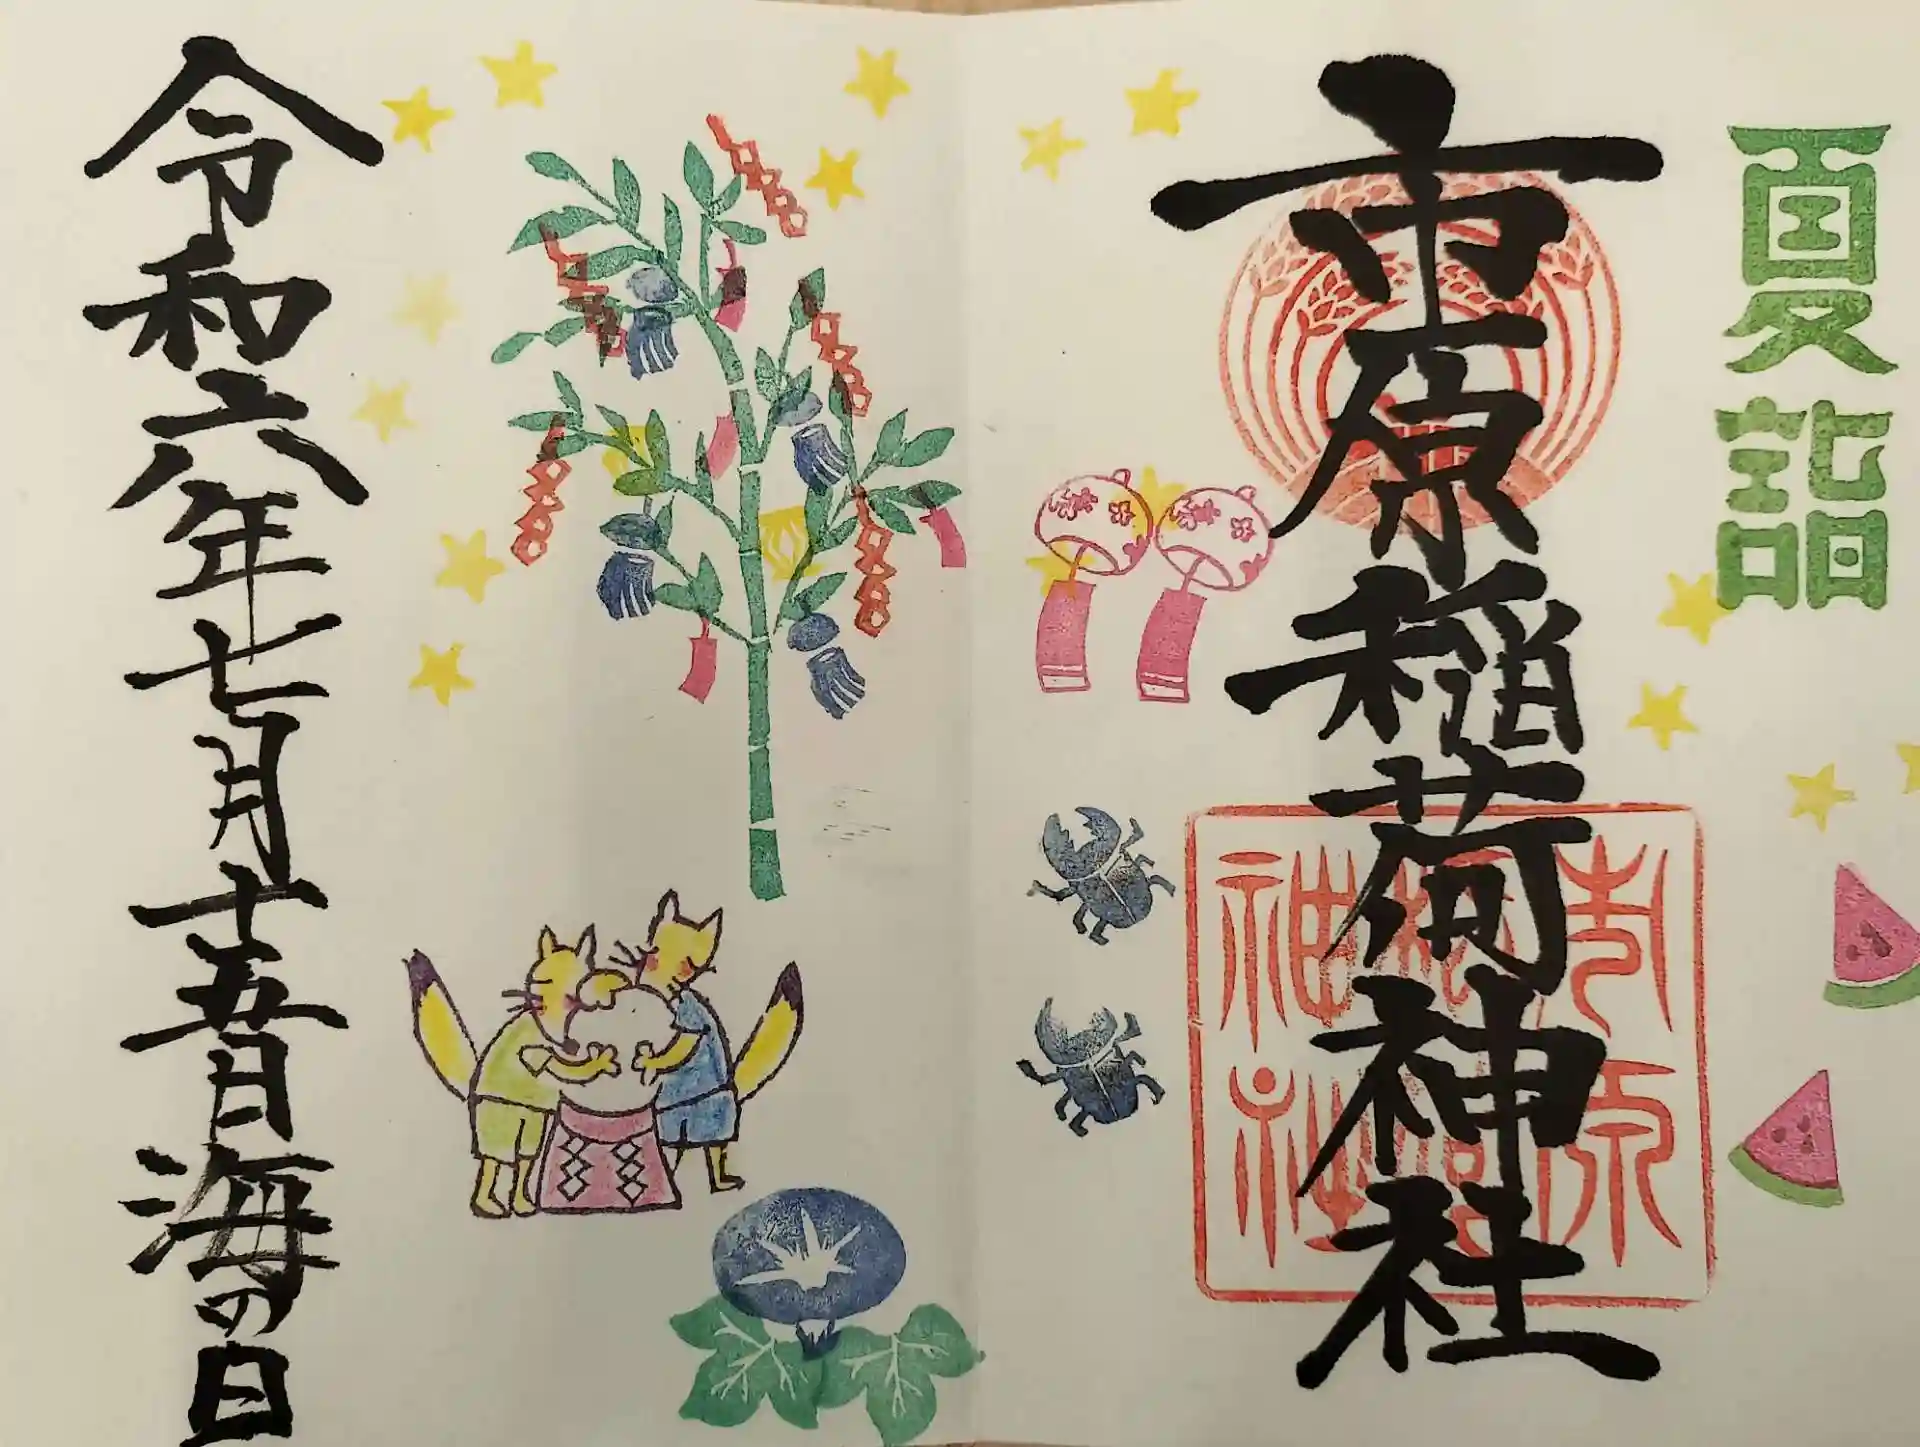 夏詣
市原稲荷神社
市原稲荷神社
令和六年七月十五日海の日